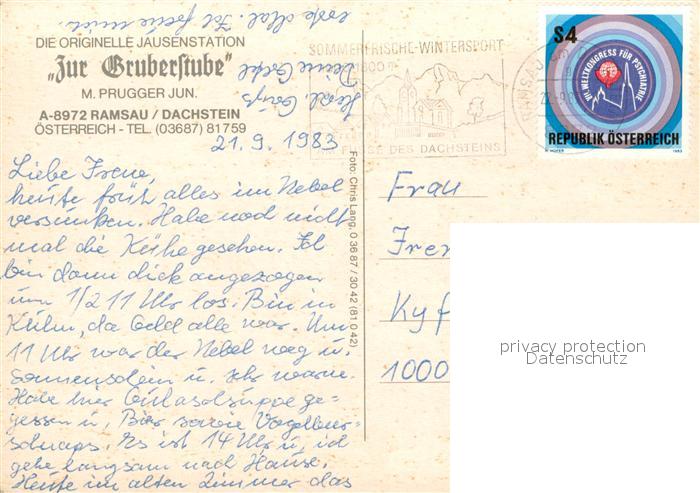 DIE ORIGINELLE JAUSENSTATION
„Zur Gruberstube"
M. PRUGGER JUN.
A-8972 RAMSAU / DACHSTEIN
ÖSTERREICH - TEL. (03687) 81759
21.9.1983
Liebe Irene,
heute früh alles im Nebel
versunken. Habe noch nicht
mal die Kühe gesehen. Ich
bin dann dick angezogen
um 1/2 11 Uhr los. Bin in
Kulm, da Geld alle war. Um
11 Uhr war der Nebel weg u.
Sonnenschein u. sehr warm.
Habe hier Gulaschsuppe ge-
gessen u. Bier sowie Vogelbeer-
schnaps. Es ist 14 Uhr u. ich
gehe langsam nach Hause.
Heute im alten Zimmer das
erste Mal. Ich freue mich.
Herzl. Grüße
Deine
Foto: Chris Lang, 0 36 87 / 30 42 (81 0 42)
SOMMERFRISCHE-WINTERSPORT
DES DACHSTEINS
RAMSAU AM
S4
VII. WELTKONGRESS FÜR PSYCHIATRIE
REPUBLIK ÖSTERREICH
1983
Frau
Iren
Kyf
1000
privacy protection
Datenschutz